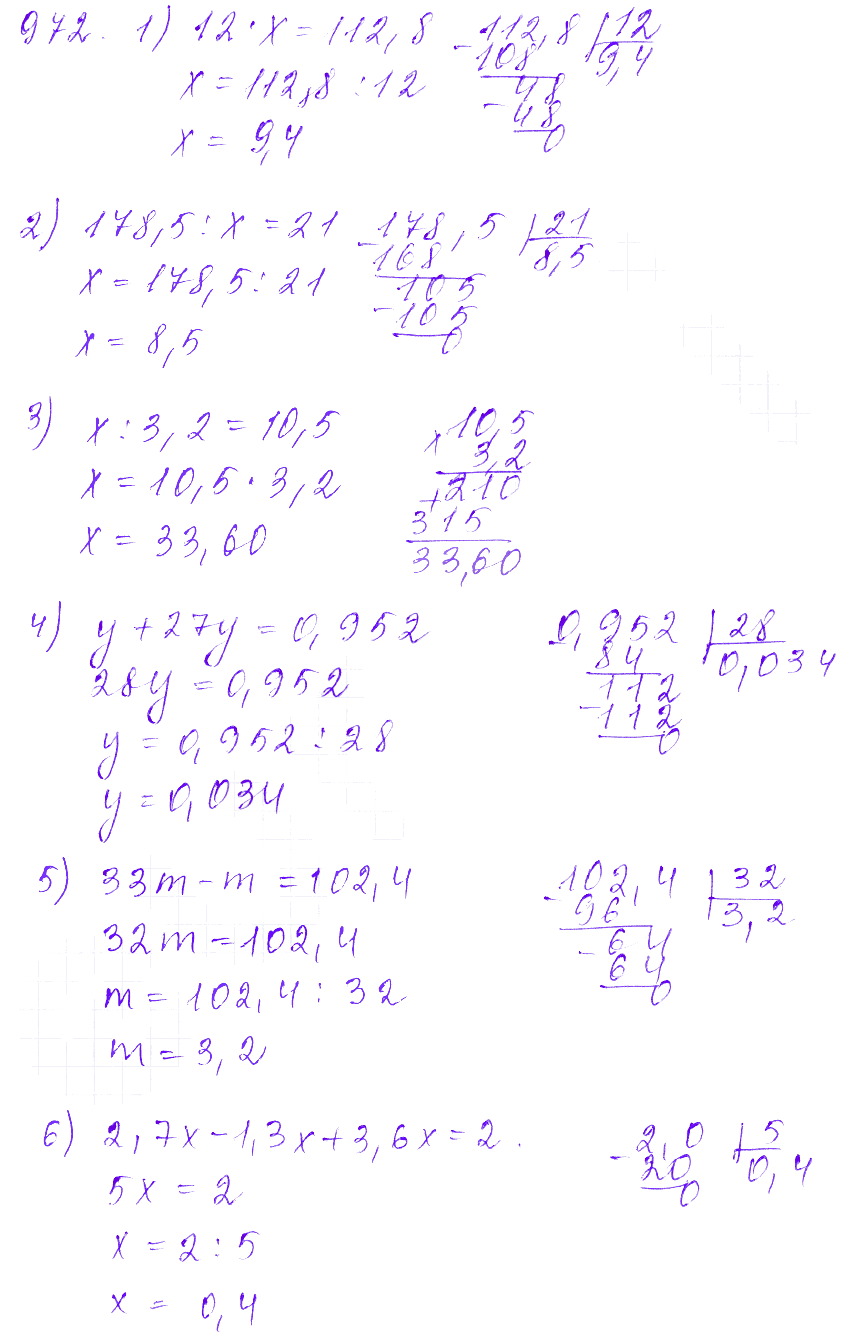 972. 1) 12 · x = 112,8
x = 112,8 : 12
x = 9,4
-112,8 | 12
108 9,4
48
-48
0
2) 178,5 : x = 21
x = 178,5 : 21
x = 8,5
-178,5 | 21
168 8,5
105
-105
0
3) x : 3,2 = 10,5
x = 10,5 · 3,2
x = 33,60
x 10,5
3,2
+210
315
33,60
4) y + 27y = 0,952
28y = 0,952
y = 0,952 : 28
y = 0,034
-0,952 | 28
84 0,034
112
-112
0
5) 33m - m = 102,4
32m = 102,4
m = 102,4 : 32
m = 3,2
-102,4 | 32
96 3,2
-64
64
0
6) 2,7x - 1,3x + 3,6x = 2.
5x = 2
x = 2 : 5
x = 0,4
-2,0 | 5
20 0,4
0